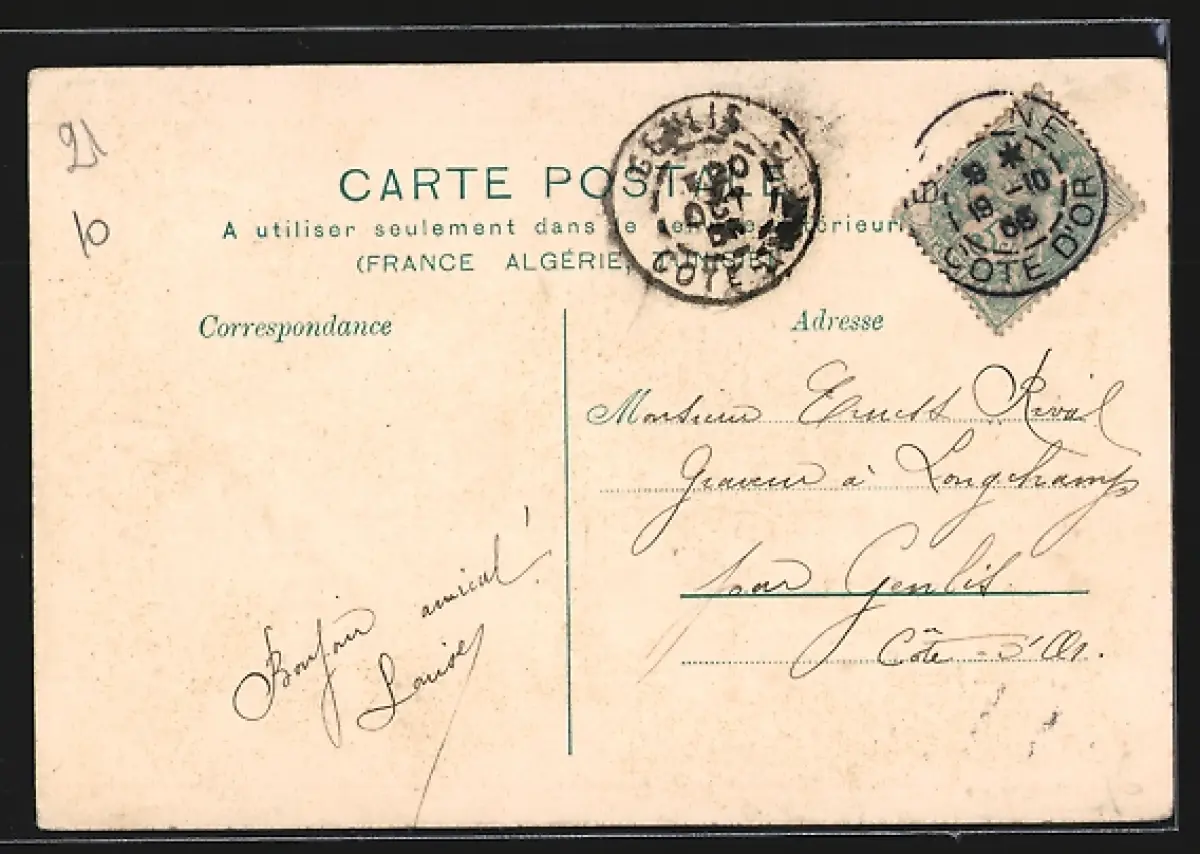 21
10
CARTE POSTALE
A utiliser seulement dans le service intérieur
(FRANCE ALGÉRIE, TUNISIE)
GENLIS
20
OCT
COTE
NE
19 -10
05
COTE D'OR
Correspondance
Adresse
Monsieur Ernest Rival
Graveur à Longchamp
par Genlis
Côte-d'Or.
Bonjour amical!
Louise